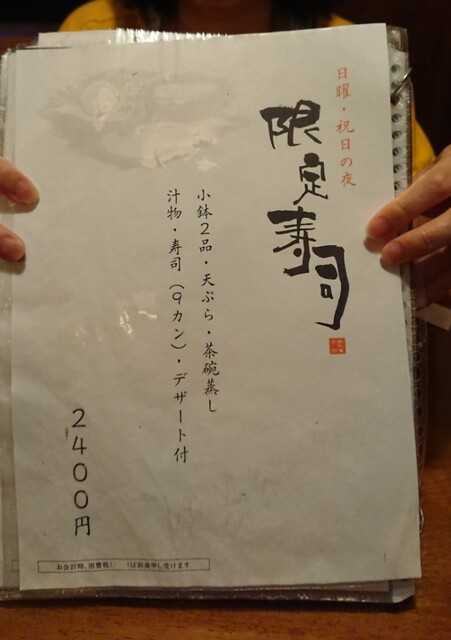 日曜・祝日の夜
限定寿司
小鉢2品・天ぷら・茶碗蒸し
汁物・寿司(9カン)・デザート付
2400円
お会計時、消費税( )は別途申し受けます